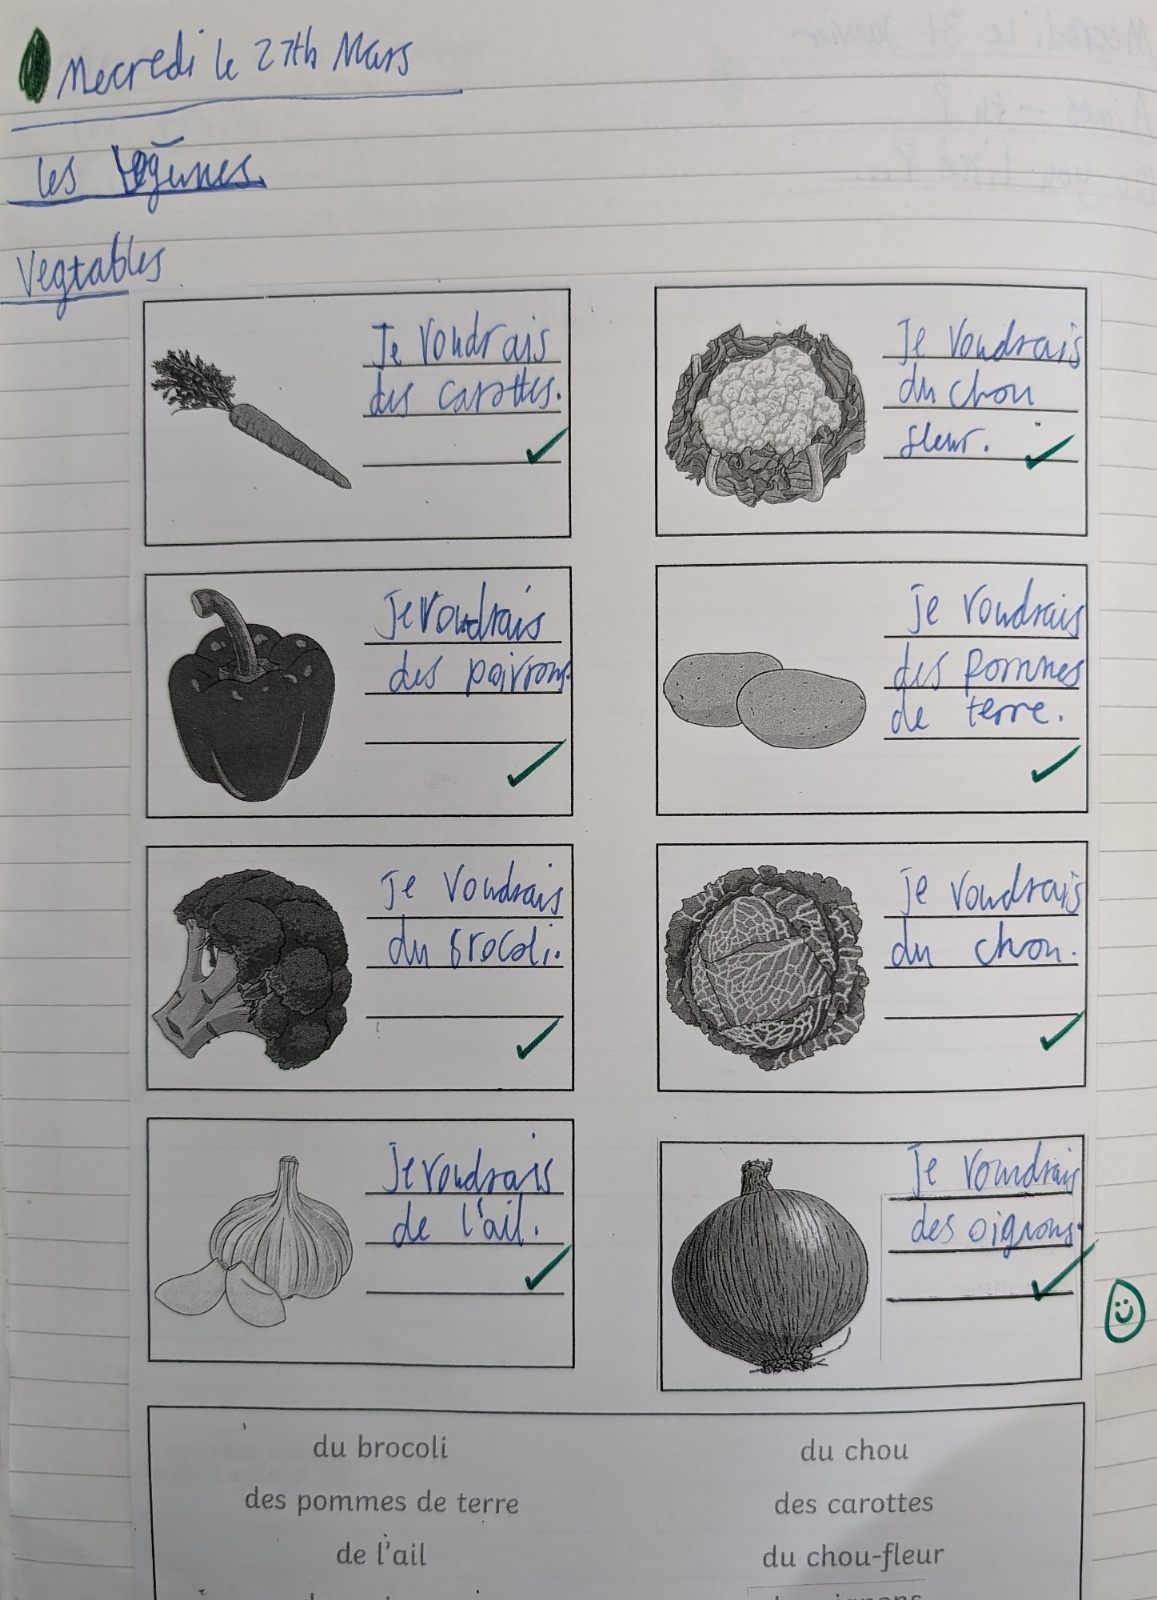 Mecredi le 27th Mars
les légumes.
Vegtables
Je voudrais
des carottes.
Je voudrais
du chou
fleur.
Je voudrais
des poivrons.
Je voudrais
des pommes
de terre.
Je voudrais
du brocoli.
Je voudrais
du chou.
Je voudrais
de l'ail.
Je voudrais
des oignons.
du brocoli
du chou
des pommes de terre
des carottes
de l'ail
du chou-fleur